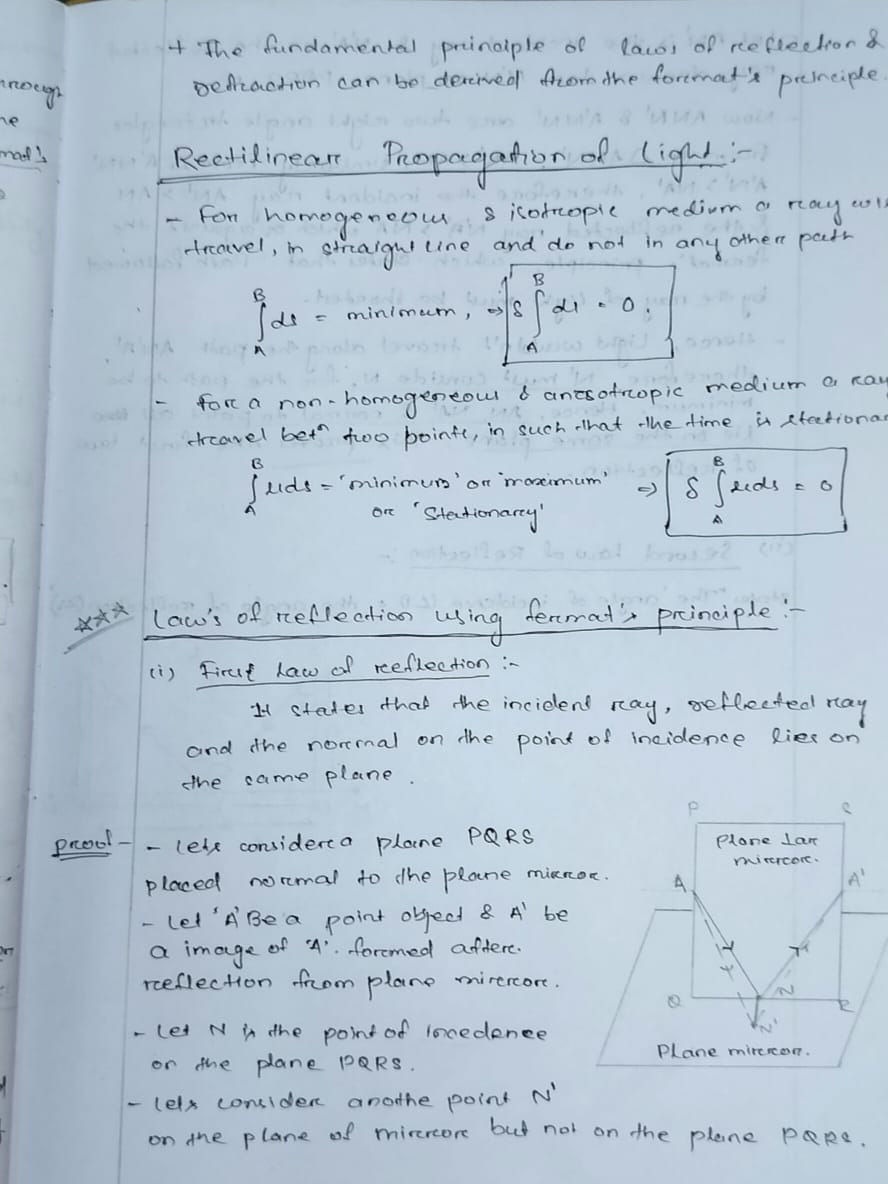 + The fundamental principle of laws of reflection &
refraction can be derived from the foremat's principle.
Rectilinear Propagation of Light :-
- For homogeneous & isotropic medium a ray will
travel, in straight line and do not in any other path
B
∫ds = minimum, ⇒ δ ∫ ds = 0.
A
- for a non-homogeneous & anisotropic medium a ray
travel betn two points, in such that the time is stationar
B
∫μds = 'minimum' or 'maximum' ⇒ δ ∫μds = 0
A
or 'Stationary'
*** Law's of reflection using fermat's principle :-
(i) First Law of reflection :-
It states that the incident ray, reflected ray
and the normal on the point of incidence lies on
the same plane.
Proof - - lets consider a plane PQRS
placed normal to the plane mirror.
- Let 'A' Be a point object & A' be
a image of 'A'. formed after
reflection from plane mirror.
- Let N is the point of incedence
on the plane PQRS.
- lets consider anothe point N'
on the plane of mirror but not on the plane PQRS.
P
S
mirror.
A
A'
Q
N
R
N'
Plane mirror.